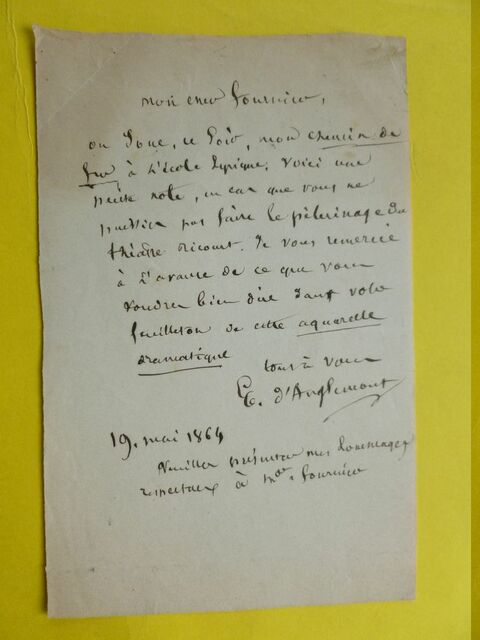 mon cher Fournier,
on joue, ce soir, mon chemin de
fer à l'école lyrique. Voici une
petite note, en cas que vous ne
puissiez pas faire le pèlerinage du
théâtre Ricourt. Je vous remercie
à l'avance de ce que vous
voudrez bien dire dans votre
feuilleton de cette aquarelle
dramatique
tout à vous
E. d'Anglemont
19. mai 1864
Veuillez présenter mes hommages
respectueux à Mme Fournier